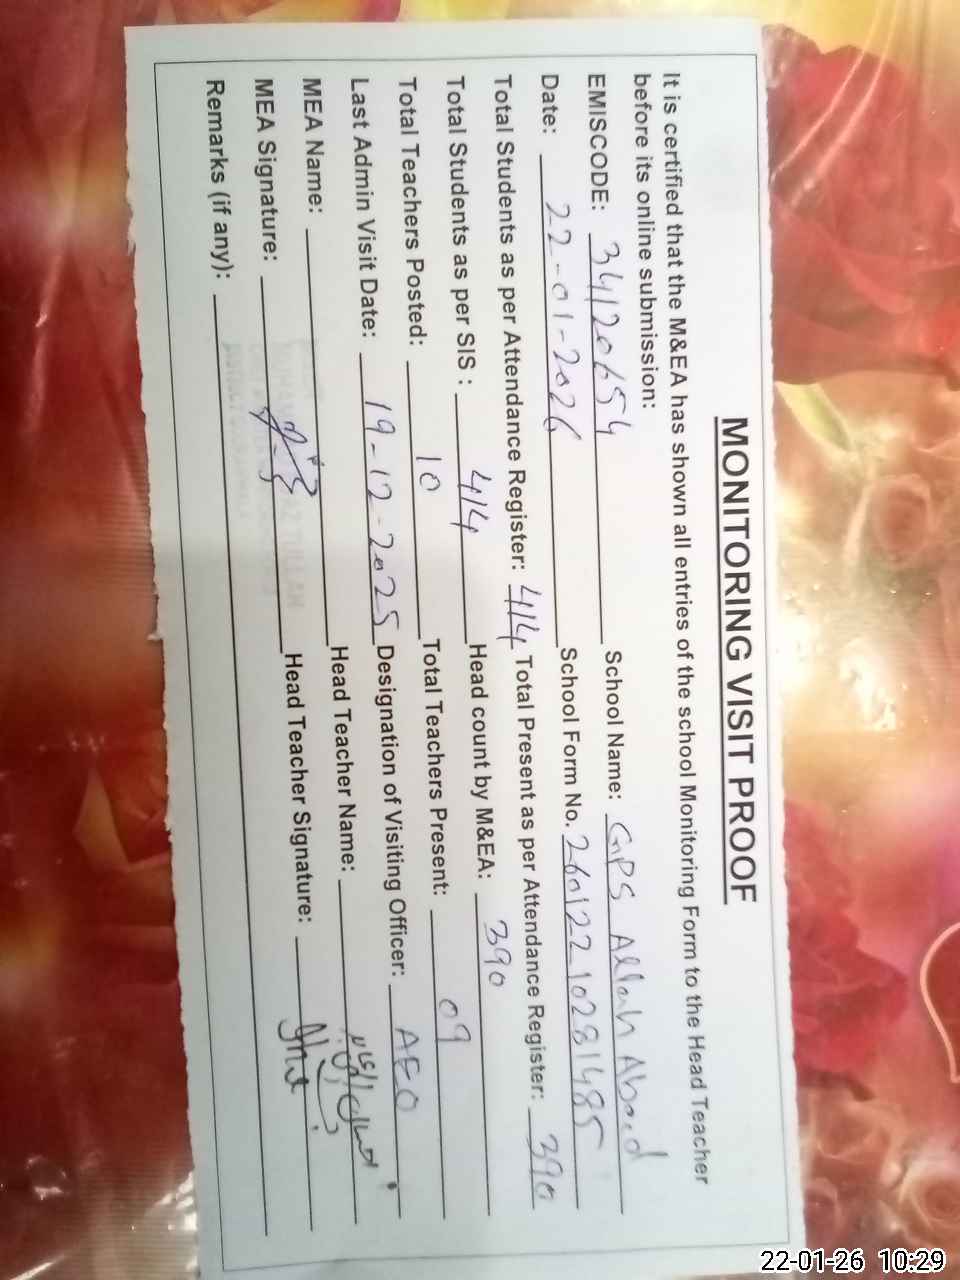 MONITORING VISIT PROOF
It is certified that the M&EA has shown all entries of the school Monitoring Form to the Head Teacher
before its online submission:
EMISCODE: 34120654 School Name: GPS Allah Abad
Date: 22-01-2026 School Form No. 26012210281485
Total Students as per Attendance Register: 414 Total Present as per Attendance Register: 390
Total Students as per SIS : 414 Head count by M&EA: 390
Total Teachers Posted: 10 Total Teachers Present: 09
Last Admin Visit Date: 19-12-2025 Designation of Visiting Officer: AEO
MEA Name: Head Teacher Name:
MEA Signature: Head Teacher Signature:
Remarks (if any):
22-01-26 10:29